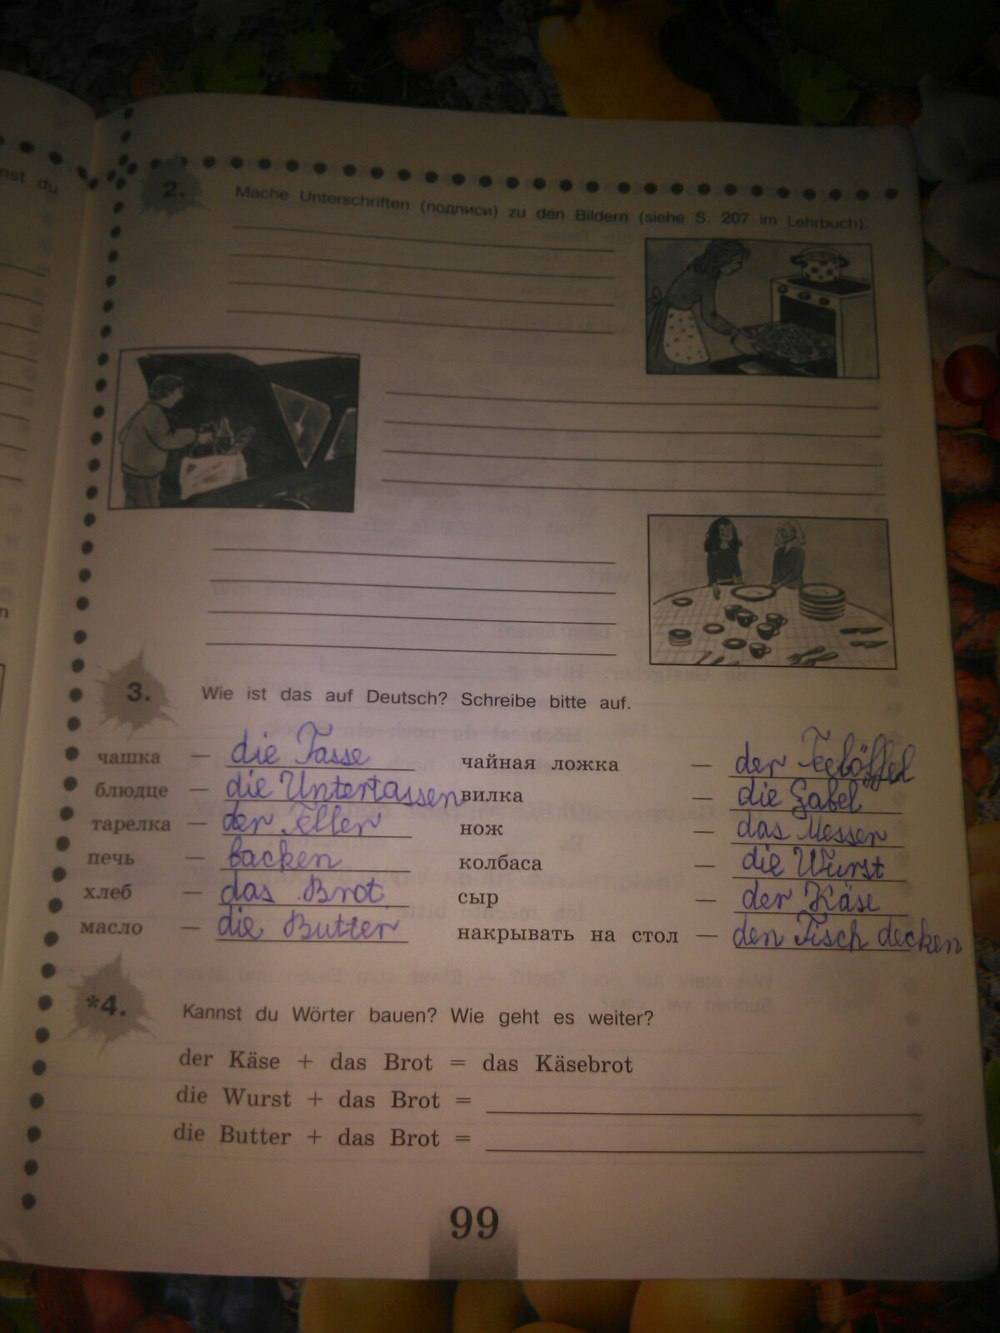 nst du
2. Mache Unterschriften (подписи) zu den Bildern (siehe S. 207 im Lehrbuch).
3. Wie ist das auf Deutsch? Schreibe bitte auf.
чашка — die Tasse
блюдце — die Untertassen
тарелка — der Teller
печь — backen
хлеб — das Brot
масло — die Butter
чайная ложка — der Teelöffel
вилка — die Gabel
нож — das Messer
колбаса — die Wurst
сыр — der Käse
накрывать на стол — den Tisch decken
*4. Kannst du Wörter bauen? Wie geht es weiter?
der Käse + das Brot = das Käsebrot
die Wurst + das Brot =
die Butter + das Brot =
99